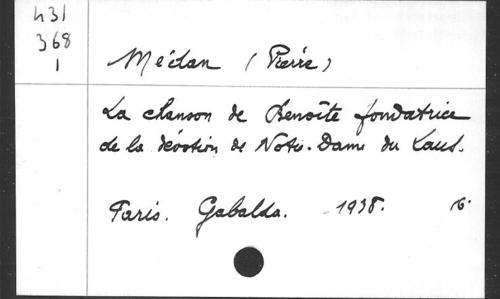 431
368
1
Médan (Pierre)
La chanson de Benoîte fondatrice
de la dévotion de Notre-Dame du Laus.
Paris. Gabalda. 1938. 16.